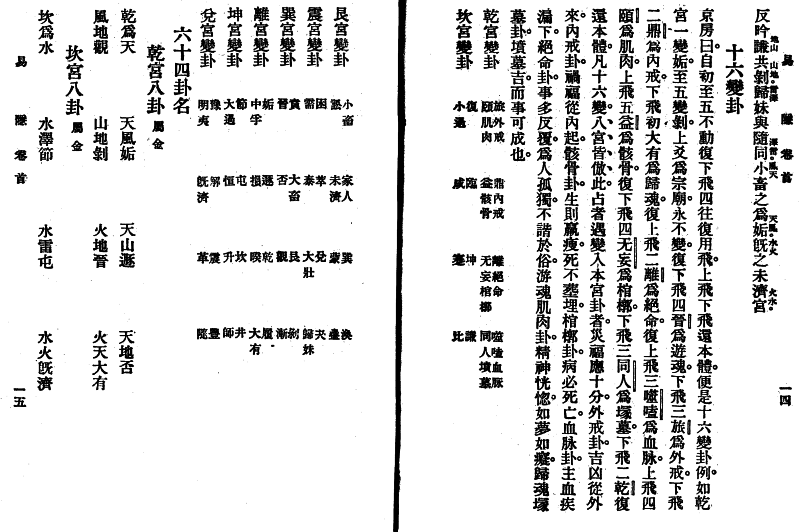 易隱卷首 一四
反吟謙地山共剝山地歸妹雷澤與隨澤雷同小畜風天之為姤天風既水火之未濟火水宮
十六變卦
京房曰自初至五不動復下飛四往復用飛上飛下飛還本體便是十六變卦例如乾
宮一變姤至五變剝上爻為宗廟永不變復下飛四晉為遊魂下飛三旅為外戒下飛
二鼎為內戒下飛初大有為歸魂復上飛二離為絕命復上飛三噬嗑為血脉上飛四
頤為肌肉上飛五益為骸骨復下飛四无妄為棺槨下飛三同人為塚墓下飛二乾復
還本體凡十六變八宮皆倣此占者遇變入本宮卦者災福應十分外戒卦吉凶從外
來內戒卦禍福從內起骸骨卦生則羸瘦死不塟埋棺槨卦病必死亡血脉卦主血疾
漏下絕命卦事多反覆為人孤獨不諧於俗游魂肌肉卦精神恍惚如夢如癡歸魂塚
墓卦墳墓吉而事可成也
乾宮變卦 旅外戒 頤肌肉 鼎內戒 益骸骨 離絕命 无妄棺槨 噬嗑血脉 同人墳墓
坎宮變卦 復 小過 臨 咸 坤 蹇 謙 比
艮宮變卦 小畜 訟 家人 未濟 巽 蒙 渙 蠱
震宮變卦 困 需 萃 泰 兌 大壯 夬 歸妹
巽宮變卦 賁 晉 大畜 否 艮 觀 剝 漸
離宮變卦 姤 中孚 遯 損 乾 睽 履 大有
坤宮變卦 節 大過 屯 恒 坎 升 井 師
兌宮變卦 豫 明夷 解 既濟 震 革 豐 隨
六十四卦名
乾宮八卦 屬金
乾為天 天風姤 天山遯 天地否
風地觀 山地剝 火地晉 火天大有
坎宮八卦 屬金
坎為水 水澤節 水雷屯 水火既濟
易隱卷首 一五